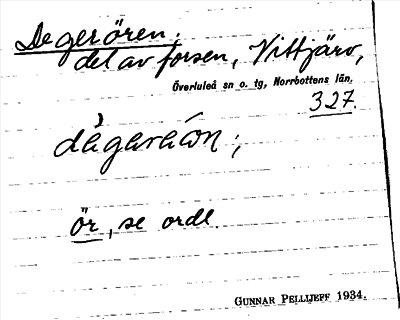 Degerören;
del av forsen, Vittjärv,
Överluleå sn o. tg, Norrbottens län.
327.
ör, se ordl.
GUNNAR PELLIJEFF 1934.